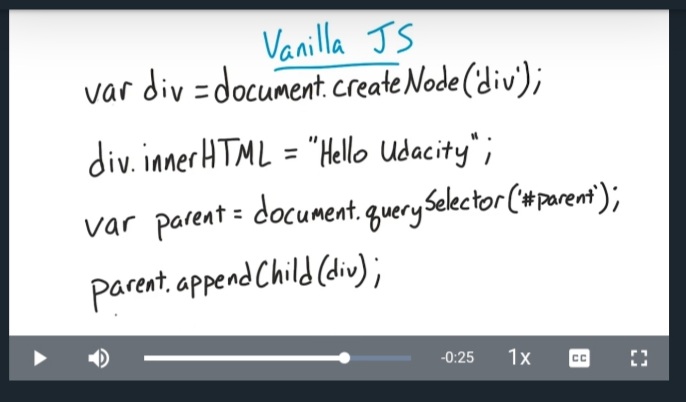 Vanilla JS
var div = document.createNode('div');
div.innerHTML = "Hello Udacity";
var parent = document.querySelector('#parent');
parent.appendChild(div);
-0:25 1x CC